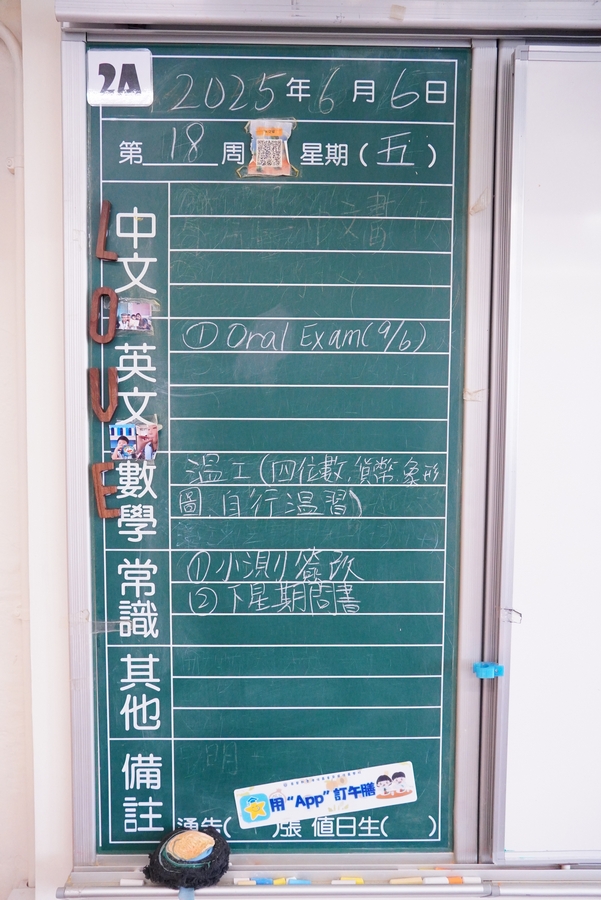 2A
2025年6月6日
第18周 星期(五)
LOVE
中文
英文
① Oral Exam(9/6)
數學
溫工(四位數,貨幣,象形
圖,自行溫習)
常識
①小測簽改
②下星期問書
其他
備註
用“App”訂午膳
通告( )張 值日生( )